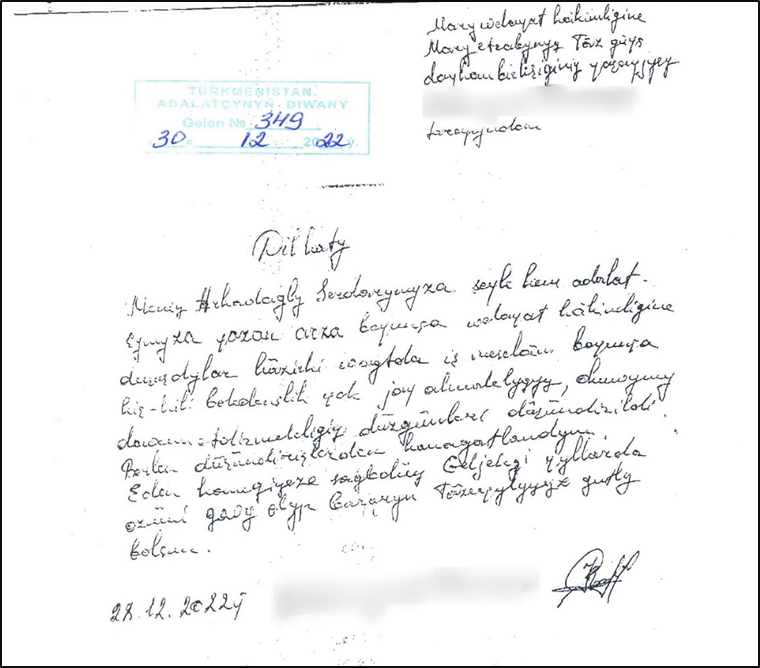 Mary welaýat häkimligine
Mary etrabynyň Täze güýç
daýhan birleşiginiň ýaşaýjysy
tarapyndan
TÜRKMENISTAN
ADALATÇYNYŇ DIWANY
Gelen № 349
30 12 2022 ý.
Dil haty
Meniň Arkadagly Serdarymyza şeýle hem adalat-
çymyza ýazan arza boýunça welaýat häkimligine
häzirki wagtda iş meseläm boýunça
hiç-hili ýok jaý almaklygy,
düzgünleri düşündirildi.
Berlen düşündirişlerden kanagatlandym.
Eden sagboluň Geljekgi ýyllarda
özüni gowy alyp Täze ýylyňyz gutly
bolsun.
28.12.2022ý